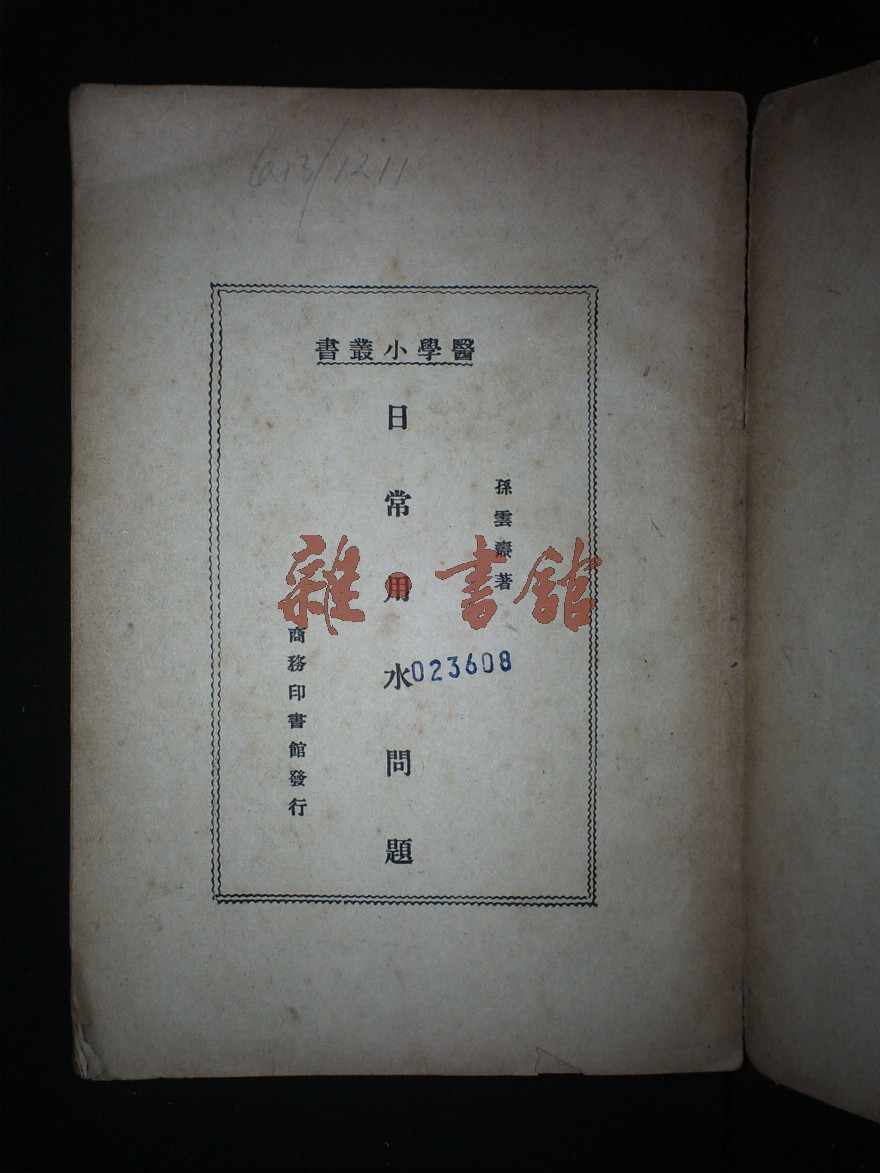 613/1211
醫學小叢書
孫雲燾著
日常用水問題
023608
商務印書館發行
雜·書館